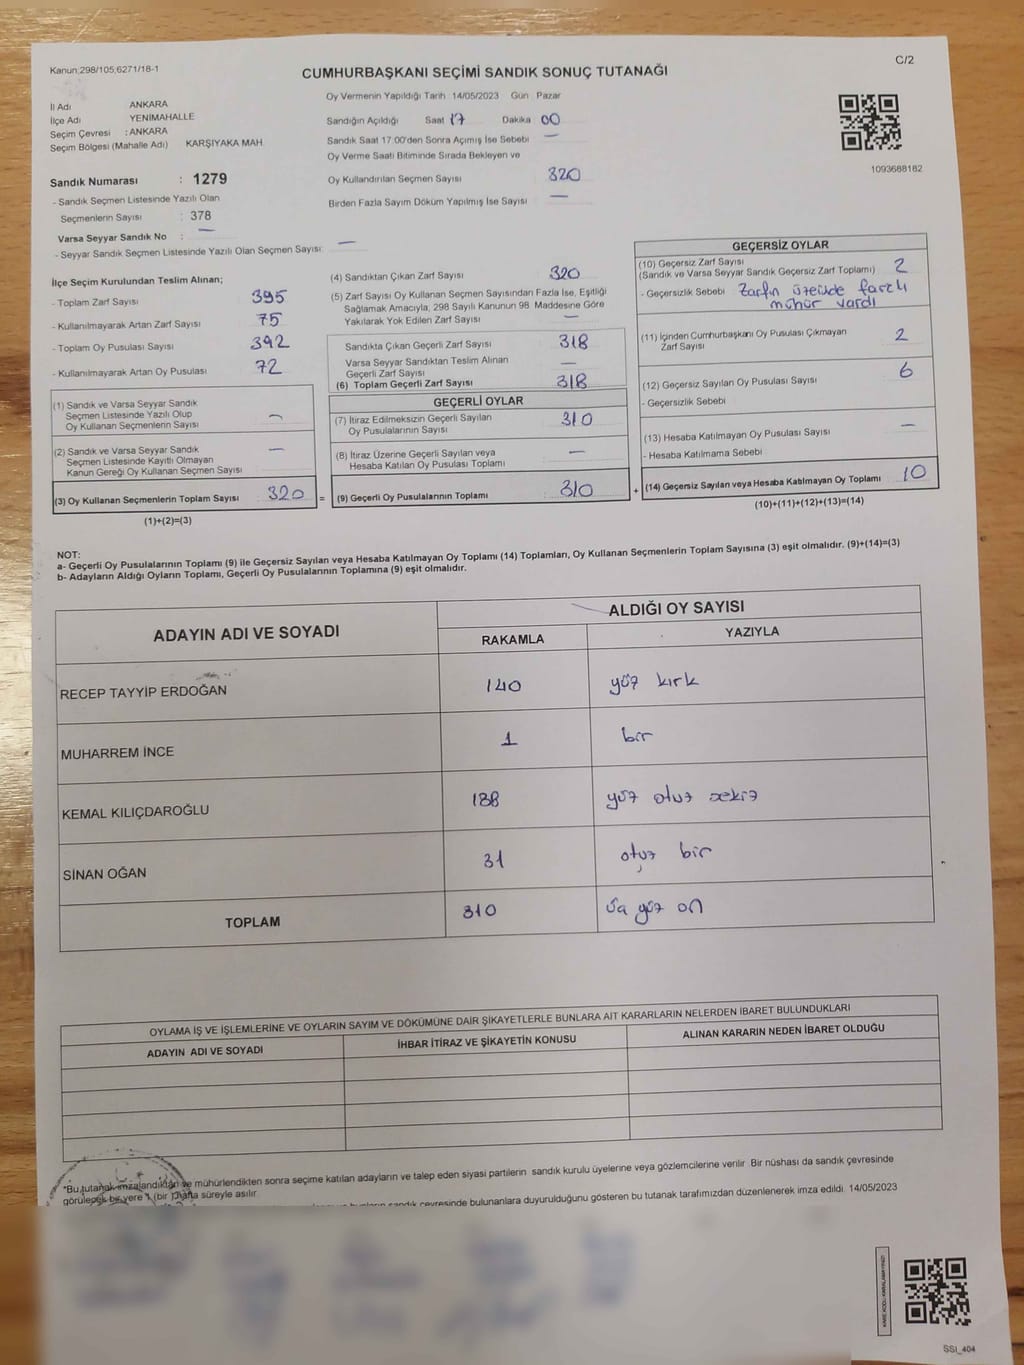 Kanun;298/105;6271/18-1
C/2
CUMHURBAŞKANI SEÇİMİ SANDIK SONUÇ TUTANAĞI
Oy Vermenin Yapıldığı Tarih 14/05/2023 Gün Pazar
İl Adı ANKARA
İlçe Adı YENİMAHALLE
Seçim Çevresi : ANKARA
Seçim Bölgesi (Mahalle Adı) KARŞIYAKA MAH.
Sandığın Açıldığı Saat 17 Dakika 00
Sandık Saat 17.00'den Sonra Açımış İse Sebebi —
Oy Verme Saati Bitiminde Sırada Bekleyen ve
Oy Kullandırılan Seçmen Sayısı 320
Birden Fazla Sayım Döküm Yapılmış İse Sayısı —
1093688182
Sandık Numarası : 1279
- Sandık Seçmen Listesinde Yazılı Olan
Seçmenlerin Sayısı : 378
Varsa Seyyar Sandık No : —
- Seyyar Sandık Seçmen Listesinde Yazılı Olan Seçmen Sayısı: —
İlçe Seçim Kurulundan Teslim Alınan;
- Toplam Zarf Sayısı 395
- Kullanılmayarak Artan Zarf Sayısı 75
- Toplam Oy Pusulası Sayısı 392
- Kullanılmayarak Artan Oy Pusulası 72
(1) Sandık ve Varsa Seyyar Sandık
Seçmen Listesinde Yazılı Olup
Oy Kullanan Seçmenlerin Sayısı —
(2) Sandık ve Varsa Seyyar Sandık
Seçmen Listesinde Kayıtlı Olmayan
Kanun Gereği Oy Kullanan Seçmen Sayısı —
(3) Oy Kullanan Seçmenlerin Toplam Sayısı 320 =
(1)+(2)=(3)
(4) Sandıktan Çıkan Zarf Sayısı 320
(5) Zarf Sayısı Oy Kullanan Seçmen Sayısından Fazla İse, Eşitliği
Sağlamak Amacıyla; 298 Sayılı Kanunun 98. Maddesine Göre
Yakılarak Yok Edilen Zarf Sayısı —
Sandıkta Çıkan Geçerli Zarf Sayısı 318
Varsa Seyyar Sandıktan Teslim Alınan
Geçerli Zarf Sayısı —
(6) Toplam Geçerli Zarf Sayısı 318
GEÇERLİ OYLAR
(7) İtiraz Edilmeksizin Geçerli Sayılan
Oy Pusulalarının Sayısı 310
(8) İtiraz Üzerine Geçerli Sayılan veya
Hesaba Katılan Oy Pusulası Toplamı —
(9) Geçerli Oy Pusulalarının Toplamı 310 +
GEÇERSİZ OYLAR
(10) Geçersiz Zarf Sayısı
(Sandık ve Varsa Seyyar Sandık Geçersiz Zarf Toplamı) 2
- Geçersizlik Sebebi Zarfın üzerinde farzlı
mühür vardı
(11) İçinden Cumhurbaşkanı Oy Pusulası Çıkmayan
Zarf Sayısı 2
(12) Geçersiz Sayılan Oy Pusulası Sayısı 6
- Geçersizlik Sebebi
(13) Hesaba Katılmayan Oy Pusulası Sayısı —
- Hesaba Katılmama Sebebi
(14) Geçersiz Sayılan veya Hesaba Katılmayan Oy Toplamı 10
(10)+(11)+(12)+(13)=(14)
NOT:
a- Geçerli Oy Pusulalarının Toplamı (9) ile Geçersiz Sayılan veya Hesaba Katılmayan Oy Toplamı (14) Toplamları, Oy Kullanan Seçmenlerin Toplam Sayısına (3) eşit olmalıdır. (9)+(14)=(3)
b- Adayların Aldığı Oyların Toplamı, Geçerli Oy Pusulalarının Toplamına (9) eşit olmalıdır.
ADAYIN ADI VE SOYADI
ALDIĞI OY SAYISI
RAKAMLA YAZIYLA
RECEP TAYYİP ERDOĞAN 140 yüz kırk
MUHARREM İNCE 1 bir
KEMAL KILIÇDAROĞLU 138 yüz otuz sekiz
SİNAN OĞAN 31 otuz bir
TOPLAM 310 üç yüz on
OYLAMA İŞ VE İŞLEMLERİNE VE OYLARIN SAYIM VE DÖKÜMÜNE DAİR ŞİKAYETLERLE BUNLARA AİT KARARLARIN NELERDEN İBARET BULUNDUKLARI
ADAYIN ADI VE SOYADI İHBAR İTİRAZ VE ŞİKAYETİN KONUSU ALINAN KARARIN NEDEN İBARET OLDUĞU
*Bu tutanak imzalandıktan ve mühürlendikten sonra seçime katılan adayların ve talep eden siyasi partilerin sandık kurulu üyelerine veya gözlemcilerine verilir. Bir nüshası da sandık çevresinde
görülecek bir yere 1 (bir) hafta süreyle asılır.
sandık çevresinde bulunanlara duyurulduğunu gösteren bu tutanak tarafımızdan düzenlenerek imza edildi. 14/05/2023
SSI_404